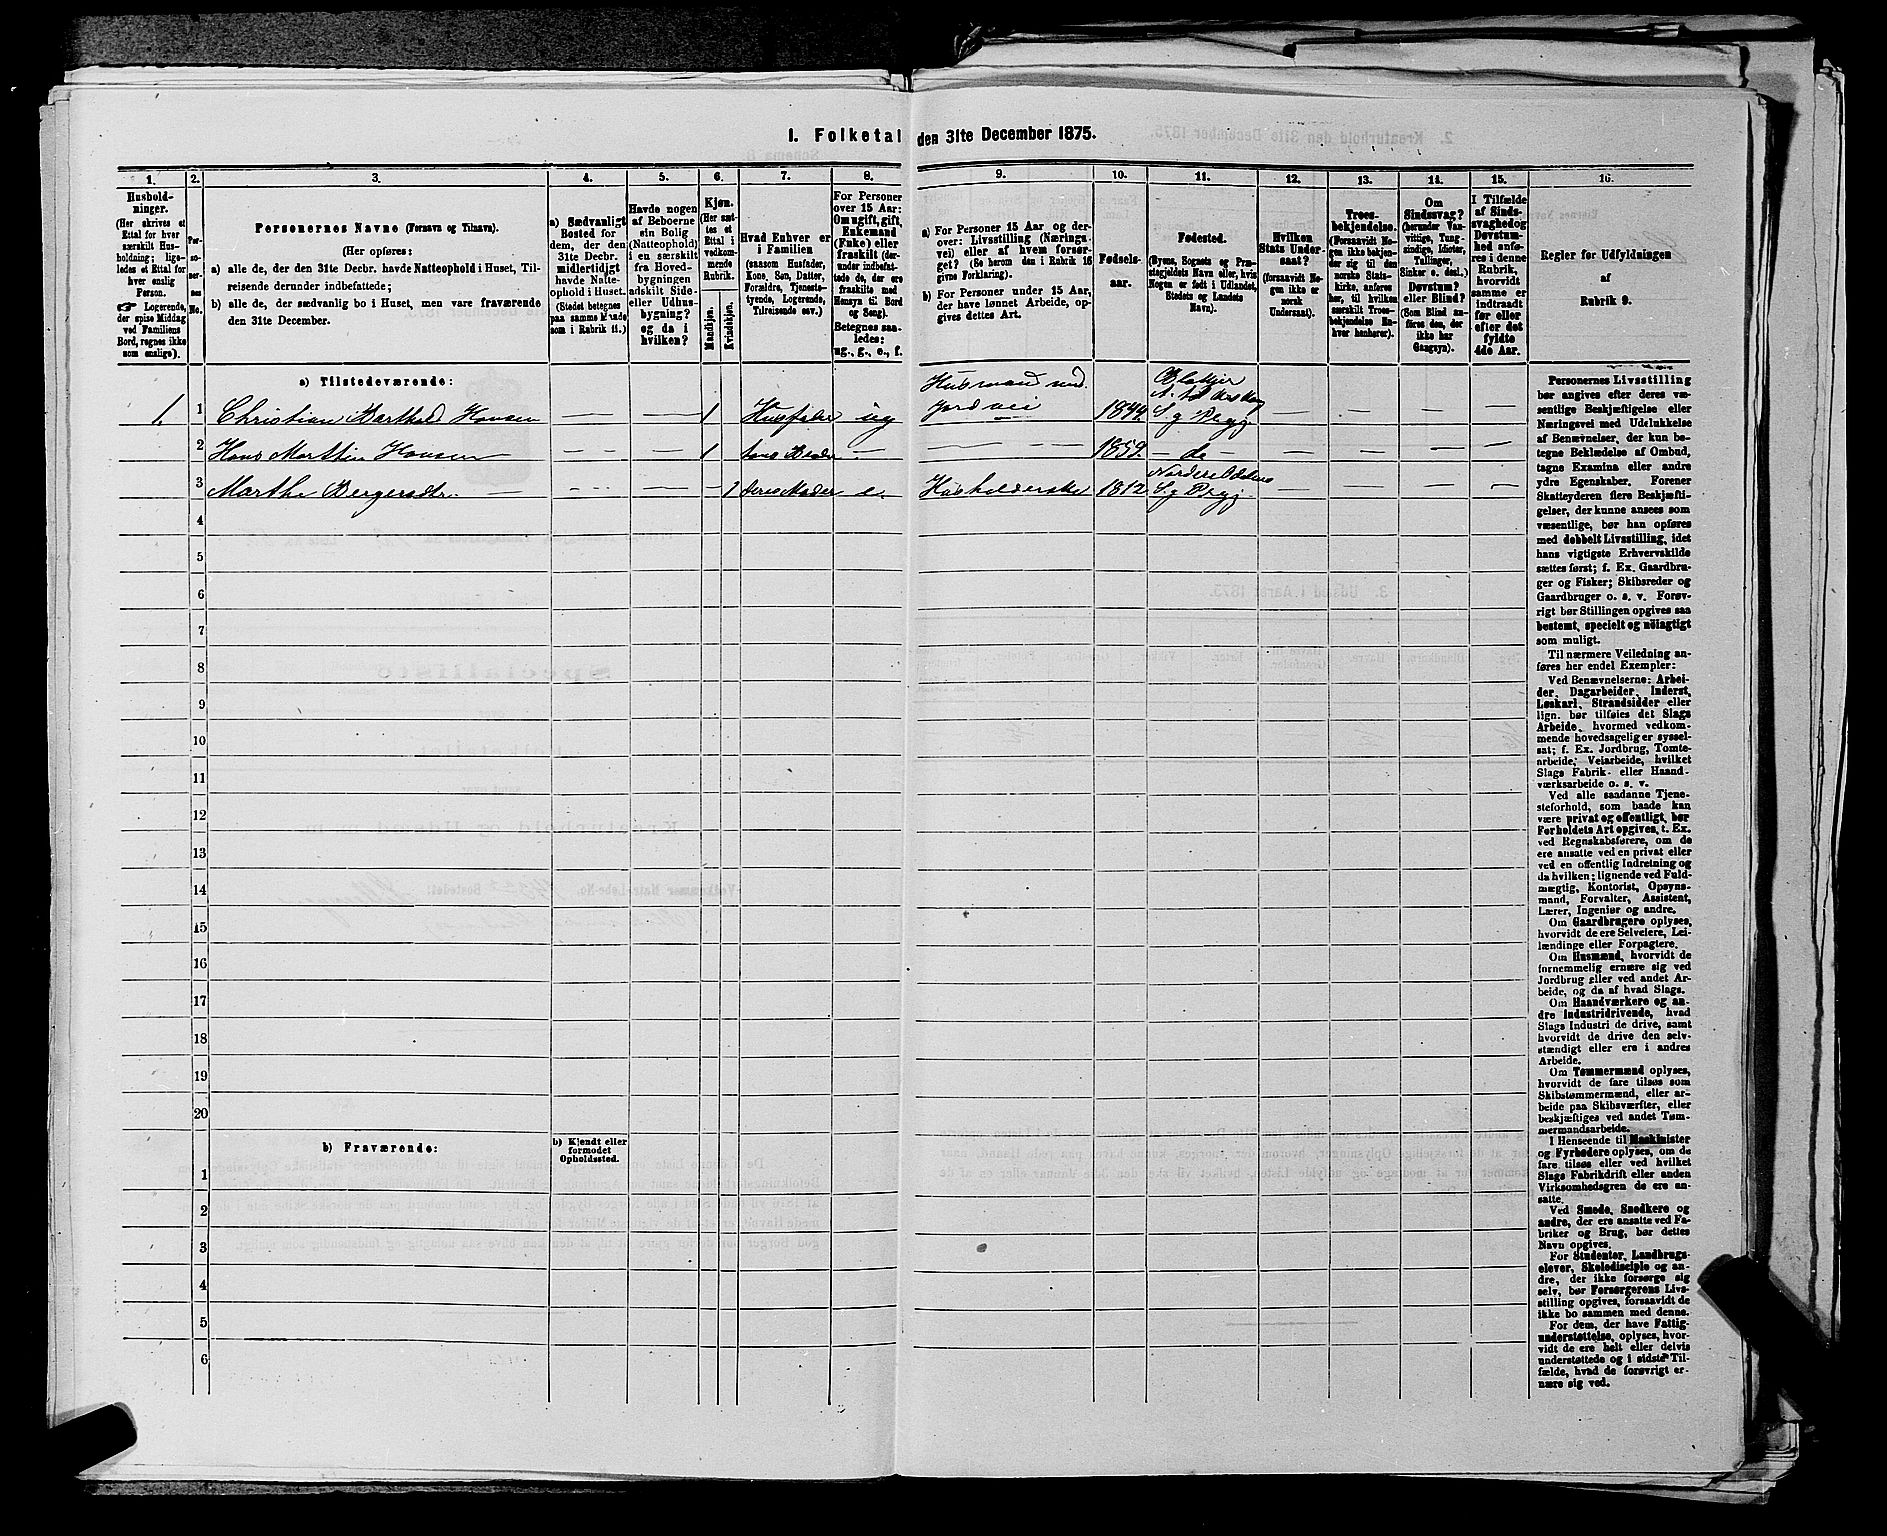 1. Folketal den 31te December 1875.
1. 2. 3. 4. 5. 6. 7. 8. 9. 10. 11. 12. 13. 14. 15. 16.
Hushold-
ninger.
(Her skrives et
Ettal for hver
særskilt Hus-
holdning; lige-
ledes et Ettal for
hver enslig
Person.
☞ Logerende,
der spise Middag
ved Familiens
Bord, regnes ikke
som enslige).
Per-
so-
ner-
nes
No.
Personernes Navne (Fornavn og Tilnavn).
(Her opføres:
a) alle de, der den 31te Decbr. havde Natteophold i Huset, Til-
reisende derunder indbefattede;
b) alle de, der sædvanlig bo i Huset, men vare fraværende
den 31te December.
a) Sædvanligt
Bosted for
dem, der den
31te Decbr.
midlertidigt
havde Natte-
ophold i Huset.
(Stedet betegnes
paa samme Maade
som i Rubrik 11.)
Havde nogen
af Beboerne
ein Bolig
(Natteophold)
i en særskilt
fra Hoved-
bygningen
adskilt Side-
eller Udhus-
bygning?
og da i
hvilken?
Kjøn.
(Her sæt-
tes et
Ettal i
vedkom-
mende
Rubrik.
Mandkjøn.
Kvindekjøn.
Hvad Enhver er
i Familien
(saasom Husfader,
Kone, Søn, Datter,
Forældre, Tjeneste-
tyende, Logerende,
Tilreisende osv.)
For Personer
over 15 Aar:
Om ugift, gift,
Enkemand
(Enke) eller
fraskilt (der-
under indbefat-
tede de, der ere
fraskilte med
Hensyn til Bord
og Seng).
Betegnes saa-
ledes:
ug., g., e., f.
a) For Personer 15 Aar og der-
over: Livsstilling (Nærings-
vei) eller af hvem forsør-
get? (Se herom den i Rubrik 16
givne Forklaring).
b) For Personer under 15 Aar,
der have lønnet Arbeide, op-
gives dettes Art.
Fødsels-
aar.
Fødested.
(Byens, Sognets og Præ-
stegjeldets Navn eller, hvis
Nogen er født i Udlandet,
Stedets og Landets
Navn).
Hvilken
Stats Under-
saat?
(forsaavidt No-
gen ikke er
norsk
Undersaat).
Troes-
bekjendelse.
(Forsaavidt No-
gen ikke bekjen-
der sig til den
norske Stats-
kirke, anføres
her, til hvilken
særskilt Troes-
bekjendelse En-
hver henhører).
Om
Sindssvag?
(herunder Van-
vittige, Tung-
sindige, Idioter,
Tullinger,
Sinker o. desl.)
Døvstum?
eller Blind?
(Som Blind an-
føres den, der
ikke har
Gangsyn).
I Tilfælde
af Sinds-
svaghed og
Døvstum-
hed anfø-
res i denne
Rubrik,
hvorvidt
samme er
indtraadt
før eller
efter det
fyldte
4de Aar.
Regler for Udfyldningen
af
Rubrik 9.
a) Tilstedeværende:
1. 1 Christian Barthod Hansen — — 1 Husfader ug Husmand med Jordvei 1844 S. og Prgj. — — — —
2 Hans Marthin Hansen — — 1 hans Broder — — 1859 — do — — — — —
3 Marthe Bergersdtr. — — — 1 deres Moder e. Husholderske 1812 S. og Prgj. — — — —
4
5
6
7
8
9
10
11
12
13
14
15
16
17
18
19
20
b) Fraværende:
b) Kjendt eller
formodet
Opholdssted.
1
2
3
4
5
6
Personernes Livsstilling
bør angives efter deres væ-
sentlige Beskjæftigelse eller
Næringsvei med Udelukkelse
af Benævnelser, der kun be-
tegne Beklædelse af Ombud,
tagne Examina eller andre
ydre Egenskaber. Forener
Skatteyderen flere Beskjæfti-
gelser, der kunne ansees som
væsentlige, bør han opføres
med dobbelt Livsstilling, idet
hans vigtigste Erhvervskilde
sættes først; f. Ex. Gaardbru-
ger og Fisker; Skibsreder og
Gaardbruger o. s. v. Forøv-
rigt bør Stillingen opgives saa
bestemt, specielt og nöiagtigt
som muligt.
Til nærmere Veiledning an-
føres her endel Exempler:
Ved Benævnelserne: Arbei-
der, Dagarbeider, Inderst,
Løskarl, Strandsidder eller
lign. bør tilføies det Slags
Arbeide, hvormed vedkom-
mende hovedsagelig er syssel-
sat; f. Ex. Jordbrug, Tomte-
arbeide, Veiarbeide, hvilket
Slags Fabrik- eller Haand-
værksarbeide o. s. v.
Ved alle saadanne Tjene-
steforhold, som baade kan
være privat og offentligt, bør
Forholdets Art opgives, t. Ex.
ved Regnskabsførere, om de
ere ansatte ved en privat eller
ved en offentlig Indretning og
da hvilken; lignende ved Fuld-
mægtig, Kontorist, Opsyns-
mand, Forvalter, Assistent,
Lærer, Ingeniør og andre.
Om Gaardbrugere oplyses,
hvorvidt de ere Selveiere, Lei-
lændinge eller Forpagtere.
Om Husmænd, hvorvidt de
fornemmelig ernære sig ved
Jordbrug eller ved andet Ar-
beide, og da af hvad Slags.
Om Haandværkere og an-
dre industridrivende, hvad
Slags Industri de drive, samt
hvorvidt de drive den selv-
stændigt eller ere i andres
Arbeide.
Om Tømmermænd oplyses,
hvorvidt de fare tilsøs som
Skibstømmermænd, eller ar-
beide paa Skibsværfter, eller
beskjæftiges ved andet Tøm-
mermandsarbeide.
I Henseende til Maskinister
og Fyrbødere oplyses, om de
fare tilsøs eller ved hvilket
Slags Fabrikdrift eller anden
Virksomhedsgren de ere an-
satte.
Ved Smede, Snedkere og
andre, der ere ansatte ved Fa-
briker og Brug, bør dettes
Navn opgives.
For Studenter, Landbrugs-
elever, Skoledisciple og an-
dre, der ikke forsørge sig
selv, bør Forsørgerens Livs-
stilling opgives, forsaavidt de
ikke bo sammen med denne.
For dem, der have Fattig-
understøttelse, oplyses, hvor-
vidt de ere helt eller delvis
understøttede og i sidste Til-
fælde, hvad de forøvrigt er-
nære sig ved.